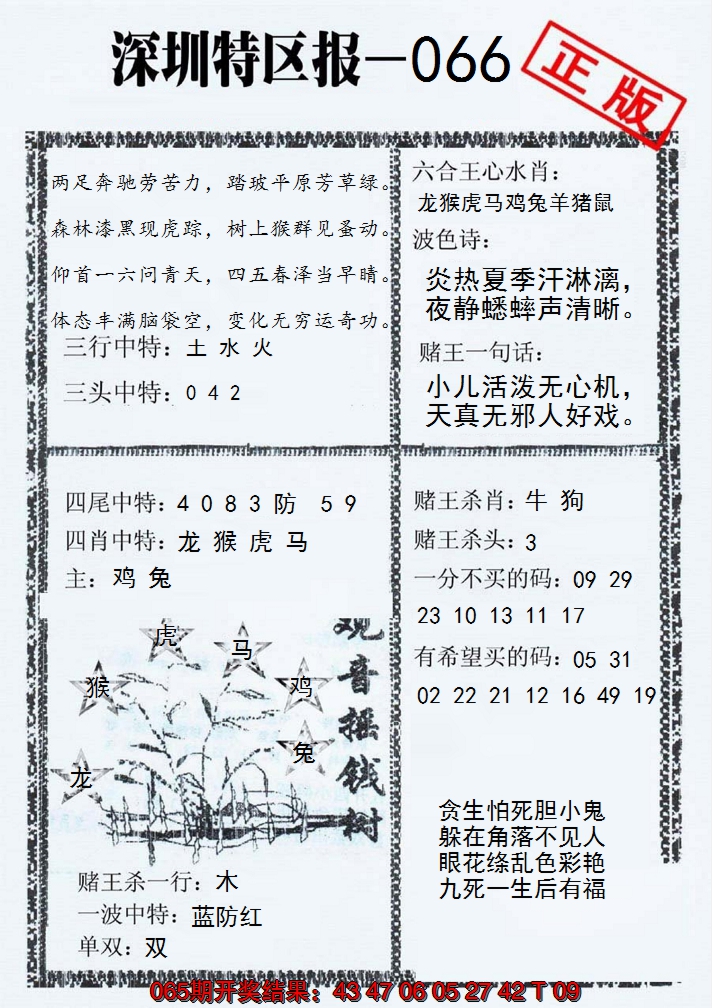 深圳特区报—066
正版
两足奔驰劳苦力，踏玻平原芳草绿。
森林漆黑现虎踪，树上猴群见蚤动。
仰首一六问青天，四五春泽当早晴。
体态丰满脑袋空，变化无穷运奇功。
三行中特：土 水 火
三头中特：0 4 2
六合王心水肖：
龙猴虎马鸡兔羊猪鼠
波色诗：
炎热夏季汗淋漓，
夜静蟋蟀声清晰。
赌王一句话：
小儿活泼无心机，
天真无邪人好戏。
四尾中特：4 0 8 3 防 5 9
四肖中特：龙 猴 虎 马
主：鸡 兔
虎
马
猴
鸡
兔
龙
观音摇钱树
赌王杀一行：木
一波中特：蓝防红
单双：双
赌王杀肖：牛 狗
赌王杀头：3
一分不买的码：09 29
23 10 13 11 17
有希望买的码：05 31
02 22 21 12 16 49 19
贪生怕死胆小鬼
躲在角落不见人
眼花绦乱色彩艳
九死一生后有福
065期开奖结果：43 47 06 05 27 42 T 09